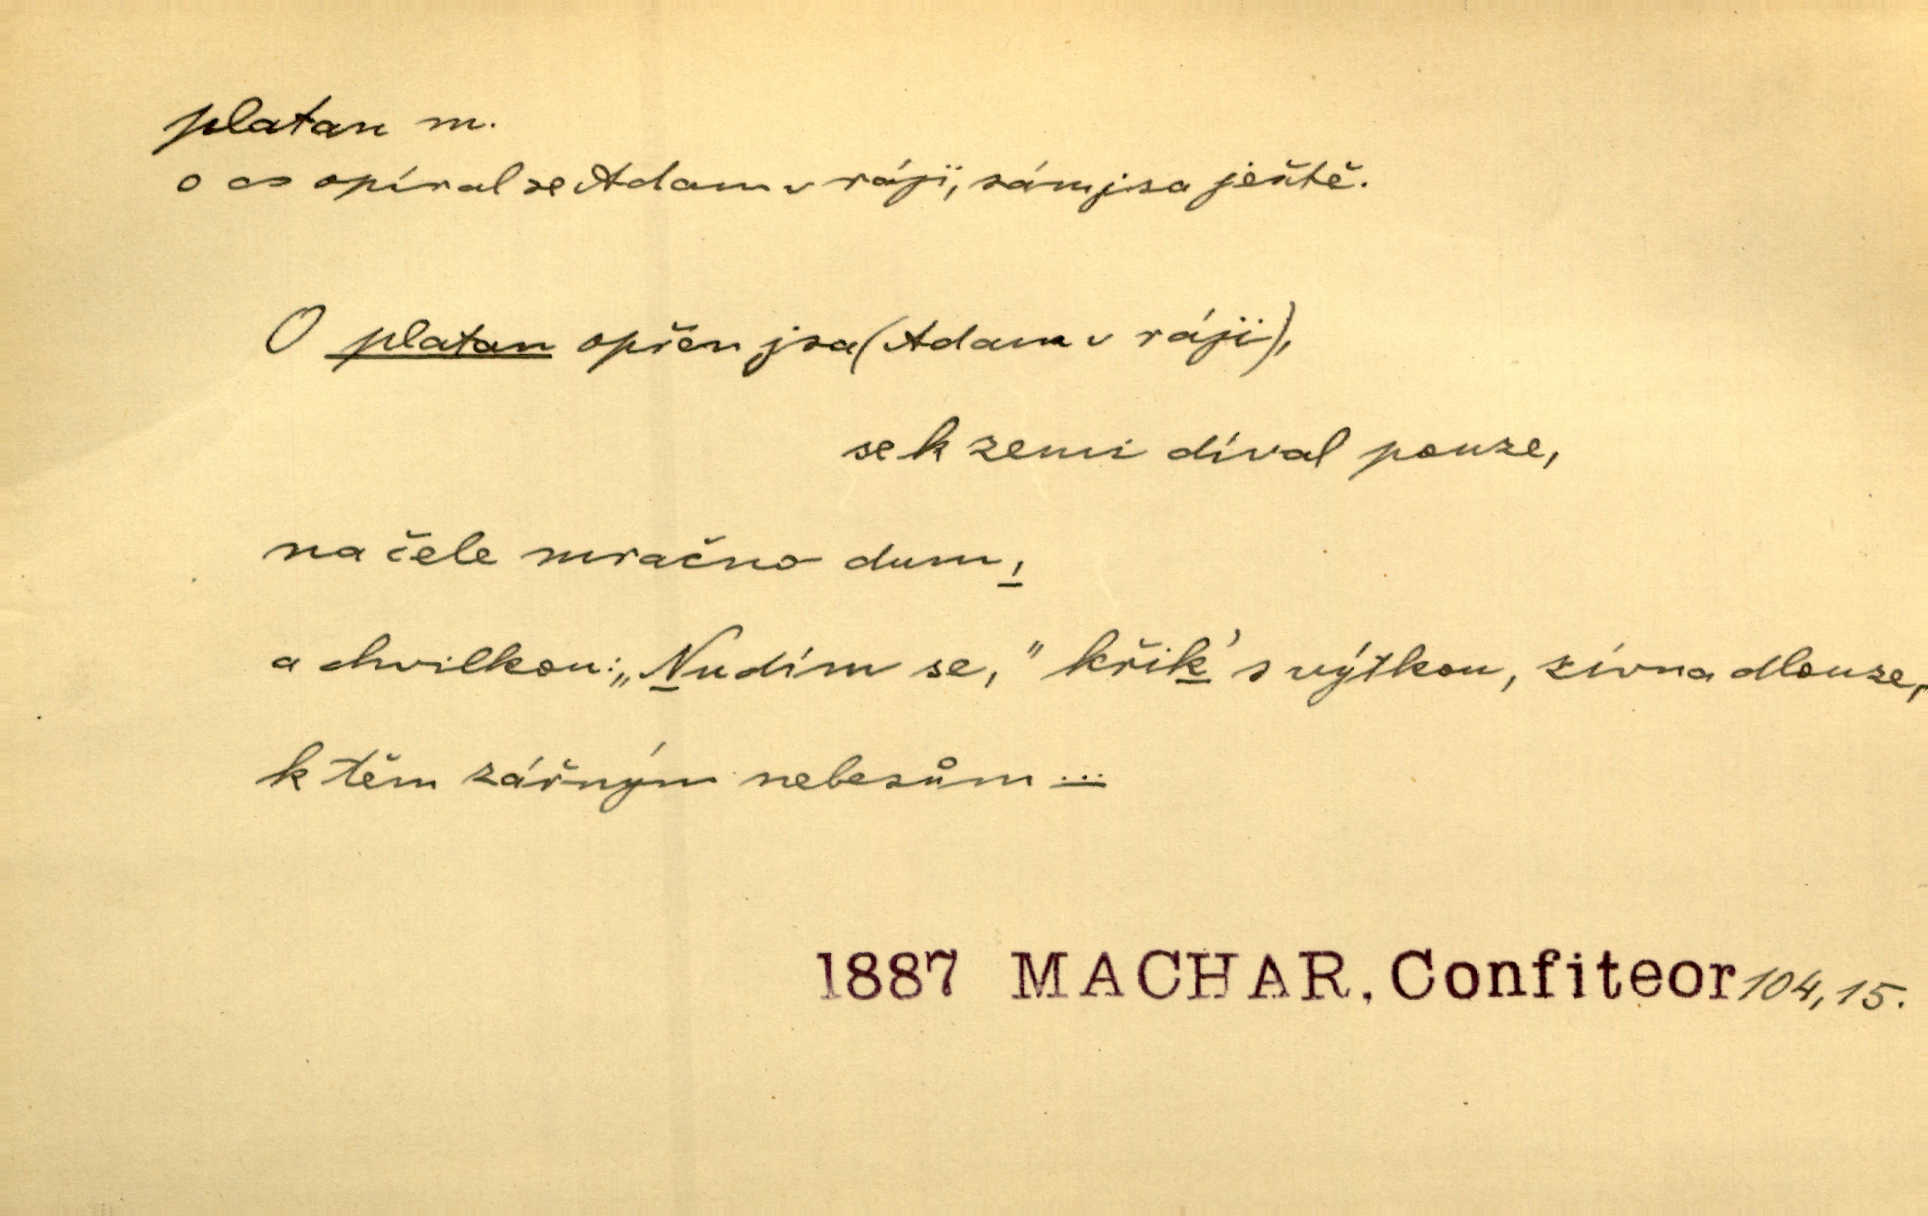 platan m.
o co opíral se Adam v ráji, sám jsa ještě.
O platan opřen jsa (Adam v ráji),
se k zemi díval pouze,
na čele mračno dum,
a chvilkou: „Nudím se," křik' s výtkou, zívna dlouze,
k těm zářným nebesům...
1887 MACHAR, Confiteor 104, 15.